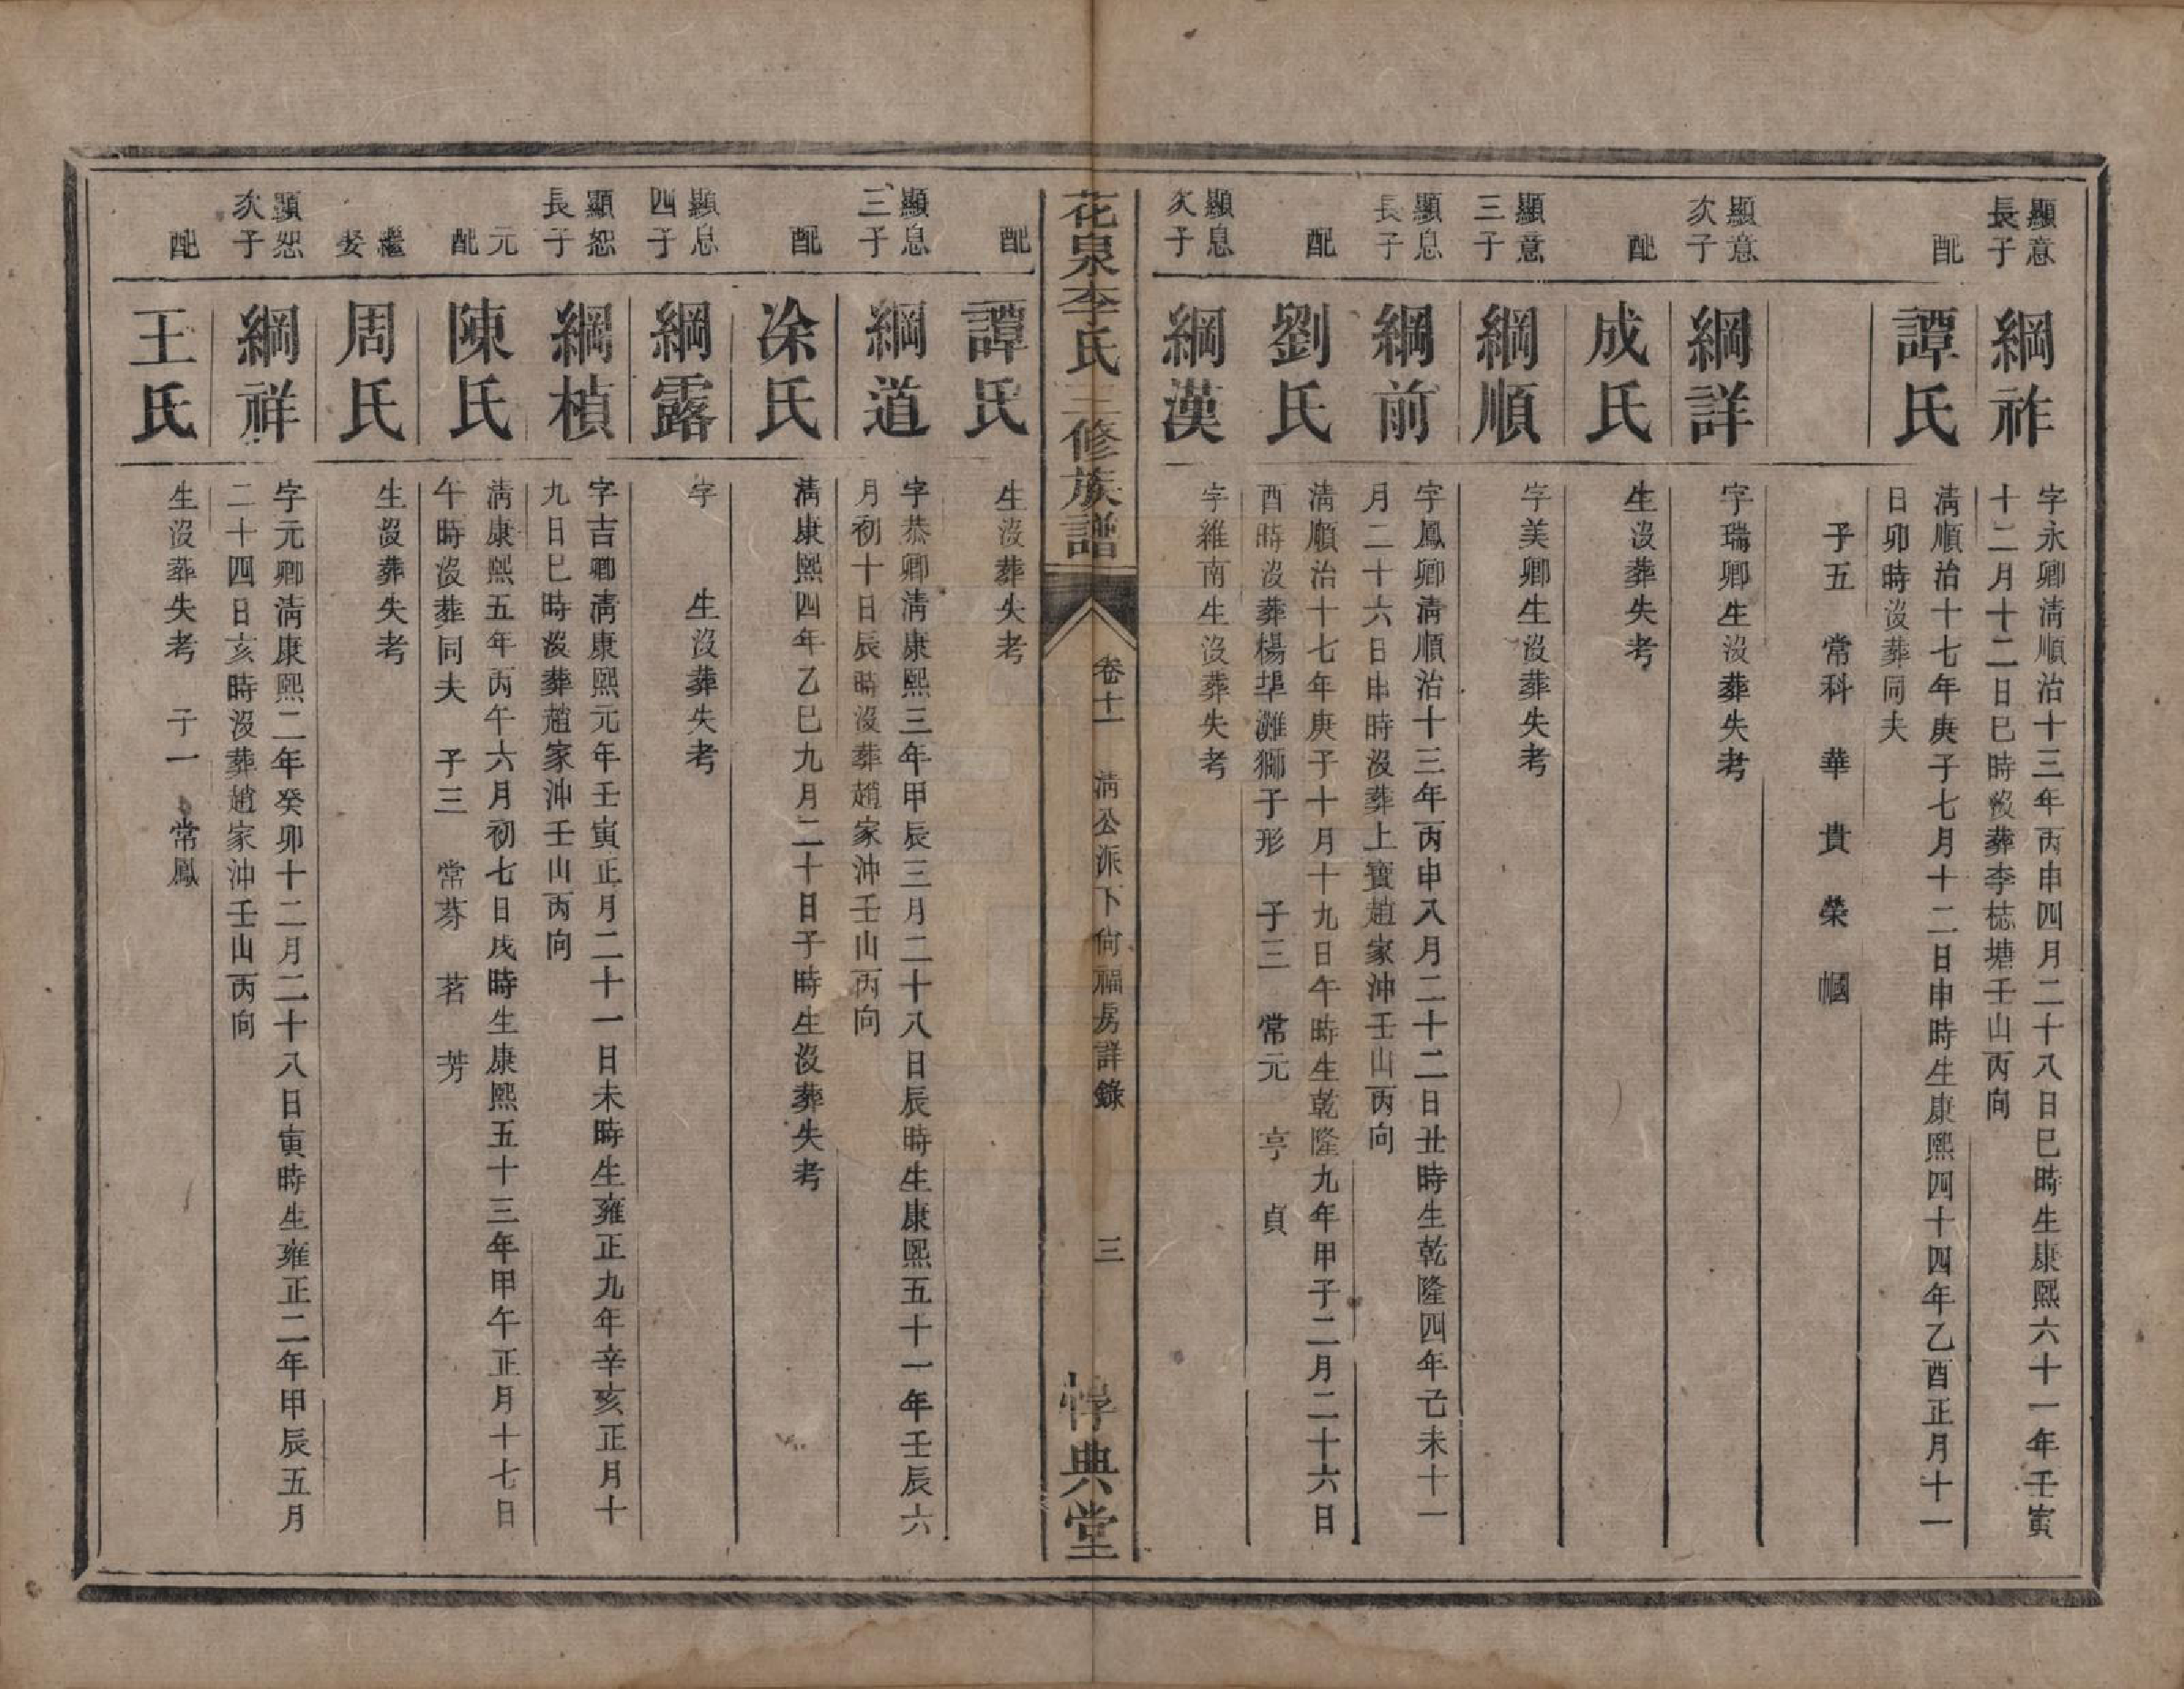 顯意
長子
綱祚
字永卿清順治十三年丙申四月二十八日巳時生康熙六十一年壬寅
十二月十二日巳時沒葬李梽塘壬山丙向
配
譚氏
清順治十七年庚子七月十二日申時生康熙四十四年乙酉正月十一
日卯時沒葬同夫
子五 常科 華 貴 榮 幗
顯意
次子
綱詳
字瑞卿生沒葬失考
配
成氏
生沒葬失考
顯意
三子
綱順
字美卿生沒葬失考
顯息
長子
綱前
字鳳卿清順治十三年丙申八月二十二日丑時生乾隆四年己未十一
月二十六日申時沒葬上寶趙家沖壬山丙向
配
劉氏
清順治十七年庚子十月十九日午時生乾隆九年甲子二月二十六日
酉時沒葬楊埠灘獅子形 子三 常元 亨 貞
顯息
次子
綱漢
字維南生沒葬失考
花泉李氏三修族譜
卷十一 淸公派下尙福房詳錄 三
惇典堂
配
譚氏
生沒葬失考
顯息
三子
綱道
字恭卿清康熙三年甲辰三月二十八日辰時生康熙五十一年壬辰六
月初十日辰時沒葬趙家沖壬山丙向
配
涂氏
清康熙四年乙巳九月二十日子時生沒葬失考
顯息
四子
綱露
字 生沒葬失考
顯恕
長子
綱楨
字吉卿清康熙元年壬寅正月二十一日未時生雍正九年辛亥正月十
九日巳時沒葬趙家沖壬山丙向
元
配
陳氏
清康熙五年丙午六月初七日戌時生康熙五十三年甲午正月十七日
午時沒葬同夫 子三 常芬 茗 芳
繼
娶
周氏
生沒葬失考
顯恕
次子
綱祥
字元卿清康熙二年癸卯十二月二十八日寅時生雍正二年甲辰五月
二十四日亥時沒葬趙家沖壬山丙向
配
王氏
生沒葬失考 子一 常鳳